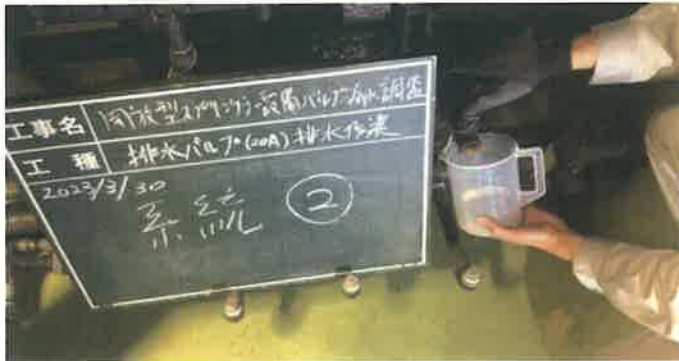 工事名 開放型スプリンクラー設備バルブ漏水調査
工種 排水バルブ(20A)排水作業
2023/3/30
系統 ②